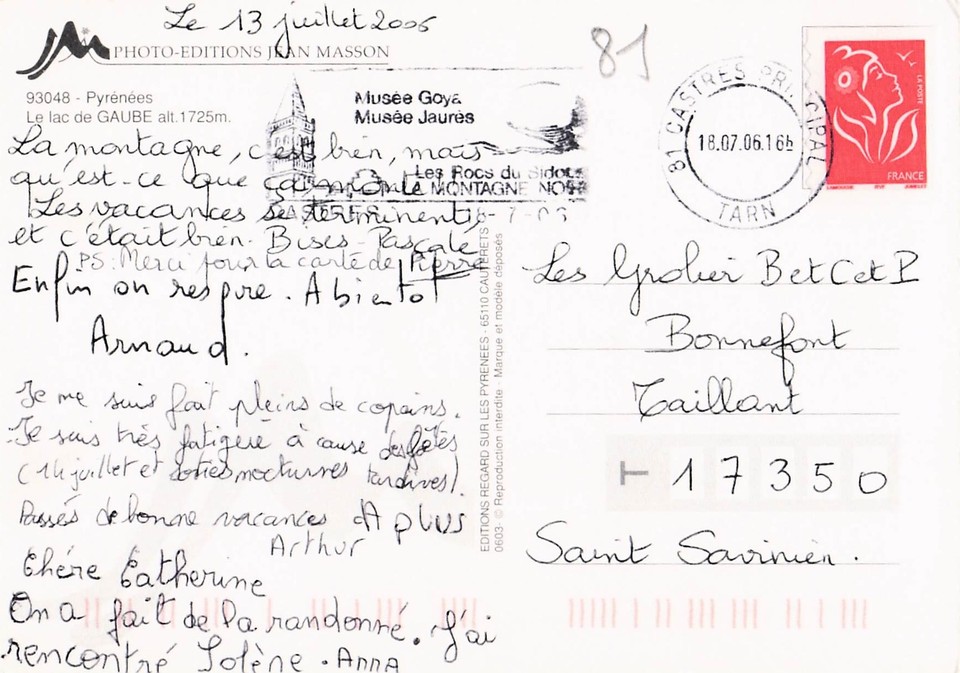 Le 13 juillet 2006
PHOTO-EDITIONS JEAN MASSON
93048 - Pyrénées
Le lac de GAUBE alt.1725m.
La montagne, c'est bien, mais
qu'est-ce que ça monte
Les vacances se terminent,
et c'était bien. Bises Pascale
PS: Merci pour la carte de Pierre
Enfin on respire. A bientot
Arnaud.
Je me suis fait pleins de copains.
Je suis très fatiguée à cause des fêtes
(14 juillet et soties nocturnes tardives).
Passés de bonne vacances A plus
Arthur
Chére Catherine
On a fait de la randonné. J'ai
rencontré Solène. Anna
EDITIONS REGARD SUR LES PYRENEES - 65110 CAUTERETS
0603- © Reproduction interdite - Marque et modèle déposés
81
Musée Goya
Musée Jaurès
Les Rocs du Sidobre
LA MONTAGNE NOIRE
CASTRES 18-7-06
81 CASTRES PRINCIPAL
18.07.06.16h
TARN
LA POSTE
FRANCE
Les Grolier B et C et P
Bonnefont
Taillant
T 17350
Saint Savinien.